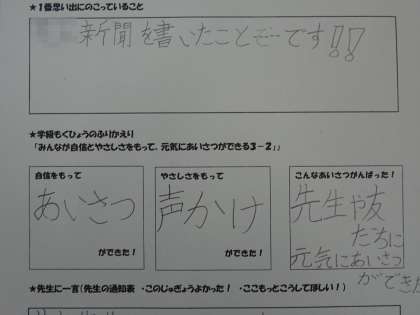 ★1番思い出にのこっていること
新聞を書いたことぞーです!!
★学級もくひょうのふりかえり
「みんなが自信とやさしさをもって、元気にあいさつができる3-2」」
自信をもって
あいさつ
ができた!
やさしさをもって
声かけ
ができた!
こんなあいさつがんばった!
先生や友
だちに
元気にあいさつ
ができた
★先生に一言(先生の通知表 ・このじゅぎょうよかった! ・ここもっとこうしてほしい!)